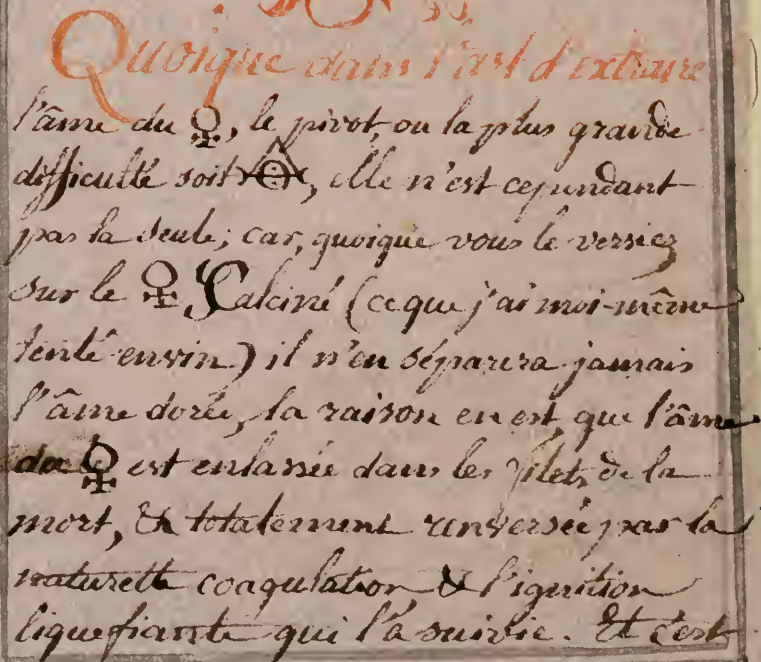 Quoique dans l'art d'extraire
l'âme du ♀, le pivot, ou la plus grande
difficulté soit, elle n'est cependant
pas la seule; car, quoique vous le versiez
sur le ♀ Calciné (ce que j'ai moi-même
tenté envin) il n'en séparera jamais
l'âme dorée, la raison en est, que l'âme
du ♀ est enlassée dans les filets de la
mort, & totalement renversée par la
naturelle coagulation & l'ignition
liquefiante qui l'a suivie. Et c'est